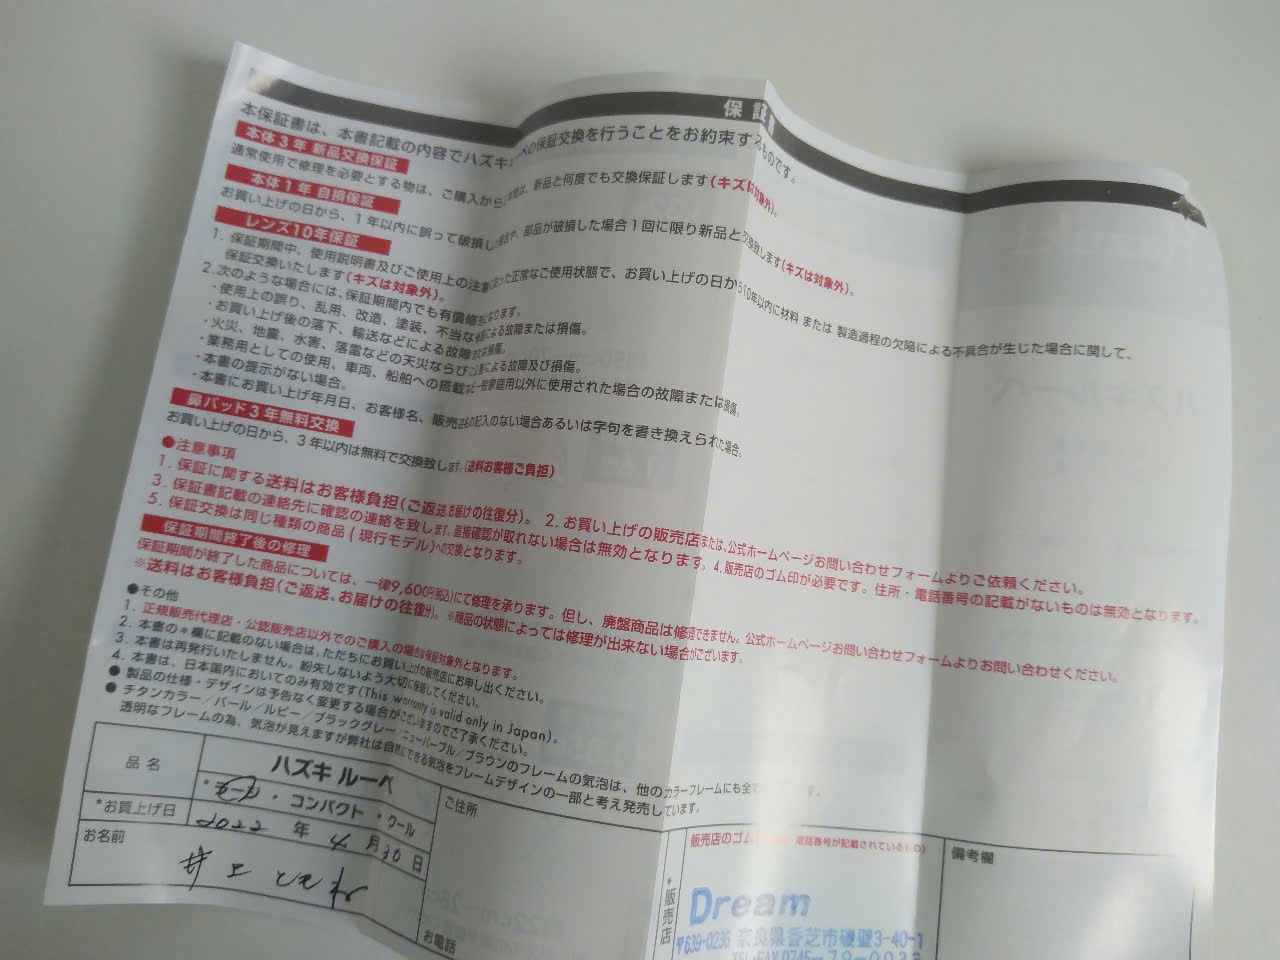 保証書
本保証書は、本書記載の内容でハズキルーペの保証交換を行うことをお約束するものです。
本体3年 新品交換保証
通常使用で修理を必要とする物は、ご購入から3年間は、新品と何度でも交換保証します(キズは対象外)。
本体1年 自損保証
お買い上げの日から、1年以内に誤って破損した場合や、部品が破損した場合1回に限り新品と交換致します(キズは対象外)。
レンズ10年保証
1. 保証期間中、使用説明書及びご使用上の注意に従った正常なご使用状態で、お買い上げの日から10年以内に材料 または 製造過程の欠陥による不具合が生じた場合に関して、
保証交換いたします(キズは対象外)。
2.次のような場合には、保証期間内でも有償修理となります。
・使用上の誤り、乱用、改造、塗装、不当な修理による故障または損傷。
・お買い上げ後の落下、輸送などによる故障または損傷。
・火災、地震、水害、落雷などの天災ならびに公害による故障及び損傷。
・業務用としての使用、車両、船舶への搭載など一般家庭用以外に使用された場合の故障または損傷。
・本書の提示がない場合。
・本書にお買い上げ年月日、お客様名、販売店名の記入のない場合あるいは字句を書き換えられた場合。
鼻パッド3年無料交換
お買い上げの日から、3年以内は無料で交換致します。(送料お客様ご負担)
●注意事項
1. 保証に関する送料はお客様負担(ご返送、お届けの往復分)。 2. お買い上げの販売店または、公式ホームページお問い合わせフォームよりご依頼ください。
3. 保証書記載の連絡先に確認の連絡を致します。直接確認が取れない場合は無効となります。4.販売店のゴム印が必要です。住所・電話番号の記載がないものは無効となります。
5. 保証交換は同じ種類の商品(現行モデル)への交換となります。
保証期間終了後の修理
保証期間が終了した商品については、一律9,600円(税込)にて修理を承ります。但し、廃盤商品は修理できません。公式ホームページお問い合わせフォームよりお問い合わせください。
※送料はお客様負担(ご返送、お届けの往復分)。※商品の状態によっては修理が出来ない場合がございます。
●その他
1. 正規販売代理店・公認販売店以外でのご購入の場合は保証対象外となります。
2. 本書の＊欄に記載のない場合は、ただちにお買い上げの販売店にお申し出ください。
3. 本書は再発行いたしません。紛失しないよう大切に保管してください。
4. 本書は、日本国内においてのみ有効です(This warranty is valid only in Japan)。
● 製品の仕様・デザインは予告なく変更する場合がございますのでご了承ください。
● チタンカラー/パール/ルビー/ブラックグレー/ニューパープル/ブラウンのフレームの気泡は、他のカラーフレームにも全て
透明なフレームの為、気泡が見えますが弊社は自然にできる気泡をフレームデザインの一部と考え発売しています。
品名
ハズキ ルーペ
・コンパクト ・クール
*お買上げ日
2022 年 4 月 30 日
お名前
ご住所
お電話
*販売店
販売店のゴム
電話番号が記載されているもの)
Dream
〒639-0236 奈良県香芝市磯壁3-40-1
TEL・FAX 0745-79-0033
備考欄